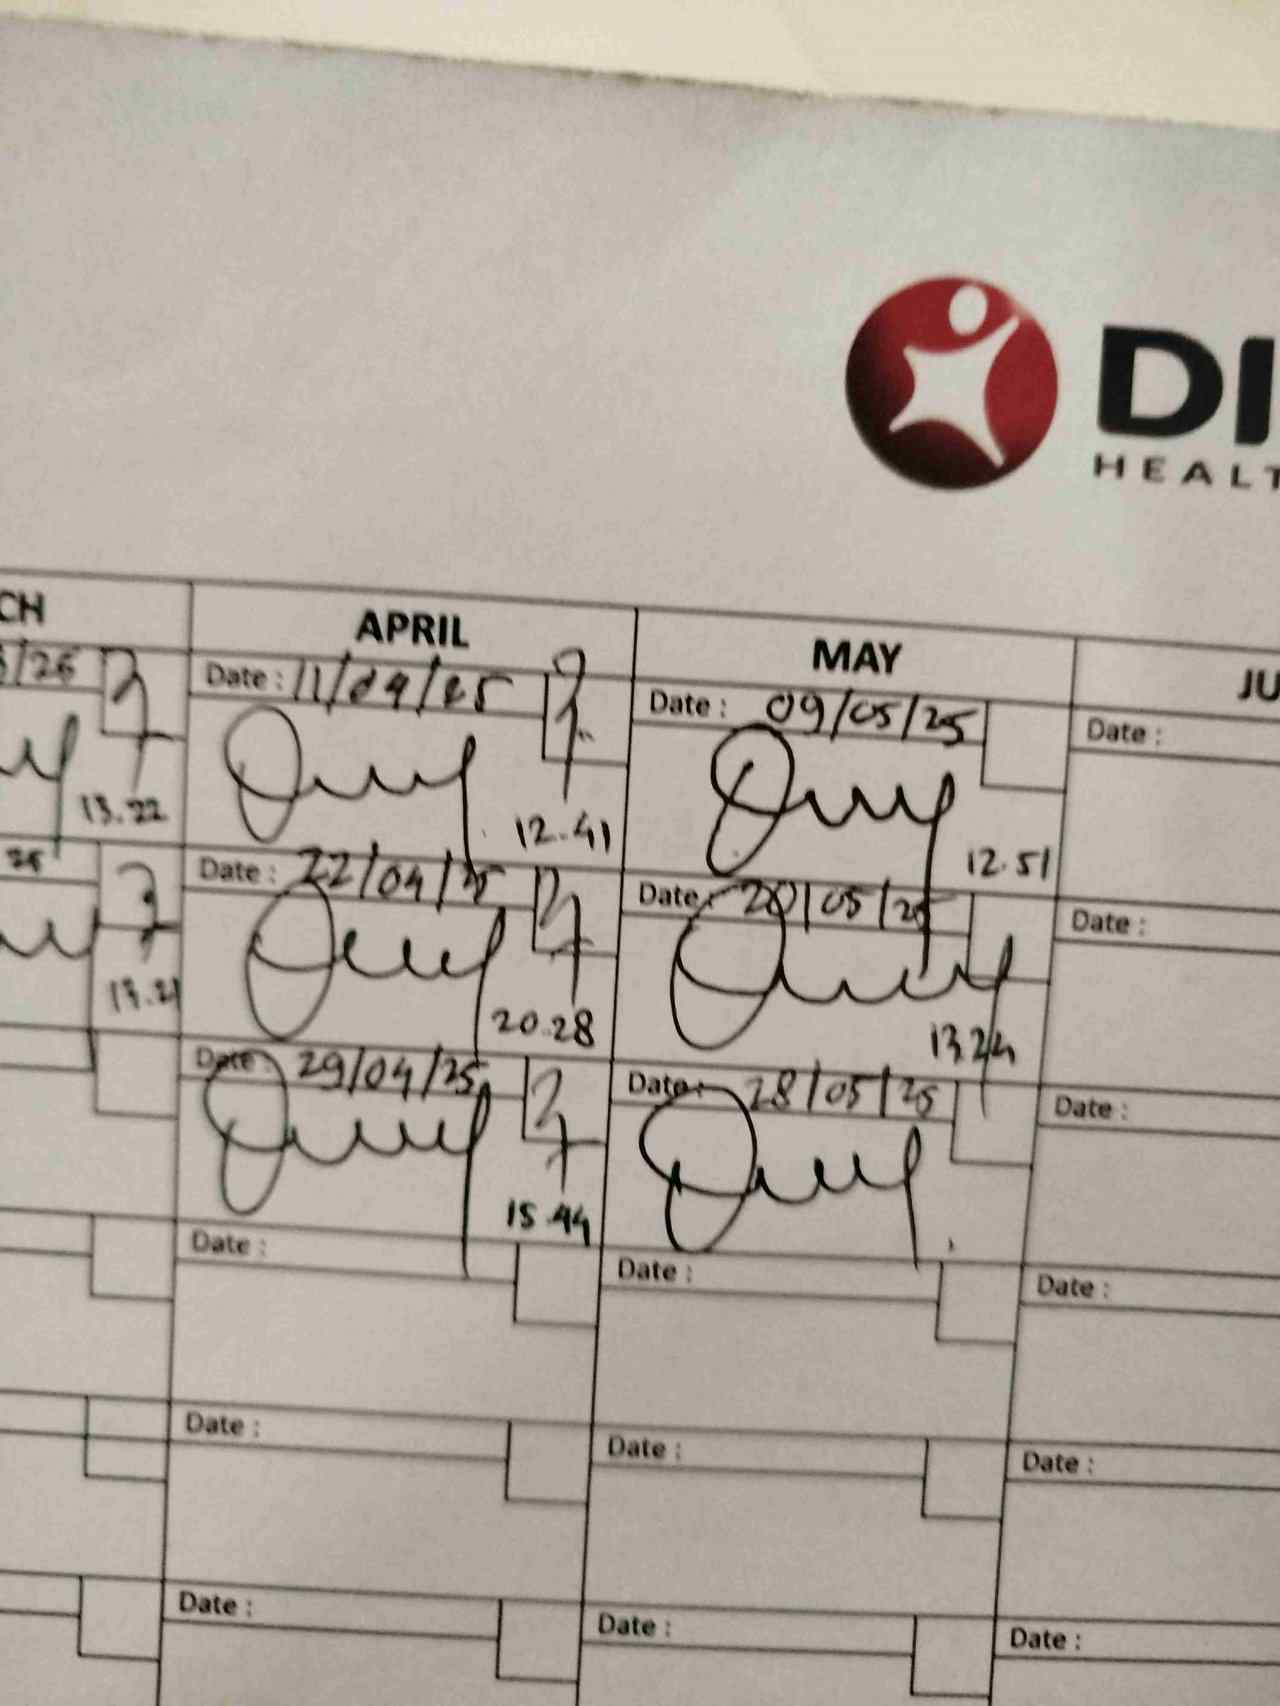 DI
HEALT
CH
APRIL
MAY
JU
Date : 11/04/25
Date : 09/05/25
Date :
13.22
12.41
12.51
Date : 22/04/25
Date : 20/05/25
Date :
13.21
20.28
13.24
Date : 29/04/25
Date : 28/05/25
Date :
15.44
Date :
Date :
Date :
Date :
Date :
Date :
Date :
Date :
Date :